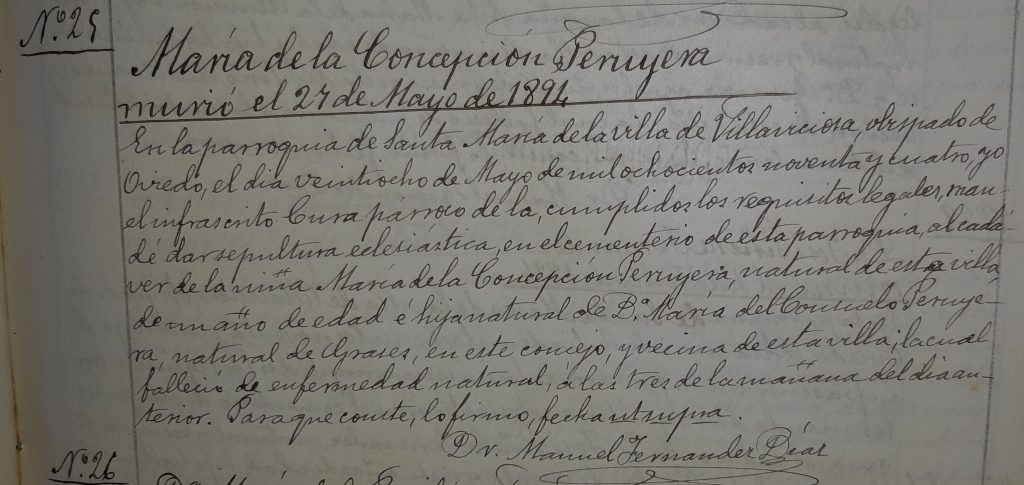 N.º 25
María de la Concepción Peruyera
murió el 27 de Mayo de 1894
En la parroquia de Santa María de la villa de Villaviciosa, obispado de
Oviedo, el día veintiocho de Mayo de mil ochocientos noventa y cuatro, yo
el infrascrito Cura párroco de la, cumplidos los requisitos legales, man-
dé dar sepultura eclesiástica, en el cementerio de esta parroquia, al cadá-
ver de la niña María de la Concepción Peruyera, natural de esta villa,
de un año de edad é hija natural de D.ª María del Consuelo Peruye-
ra, natural de Grases, en este concejo, y vecina de esta villa; la cual
falleció de enfermedad natural, á las tres de la mañana del dia an-
terior. Para que conste, lo firmo, fecha ut supra.
Dr. Manuel Fernandez Díaz
N.º 26